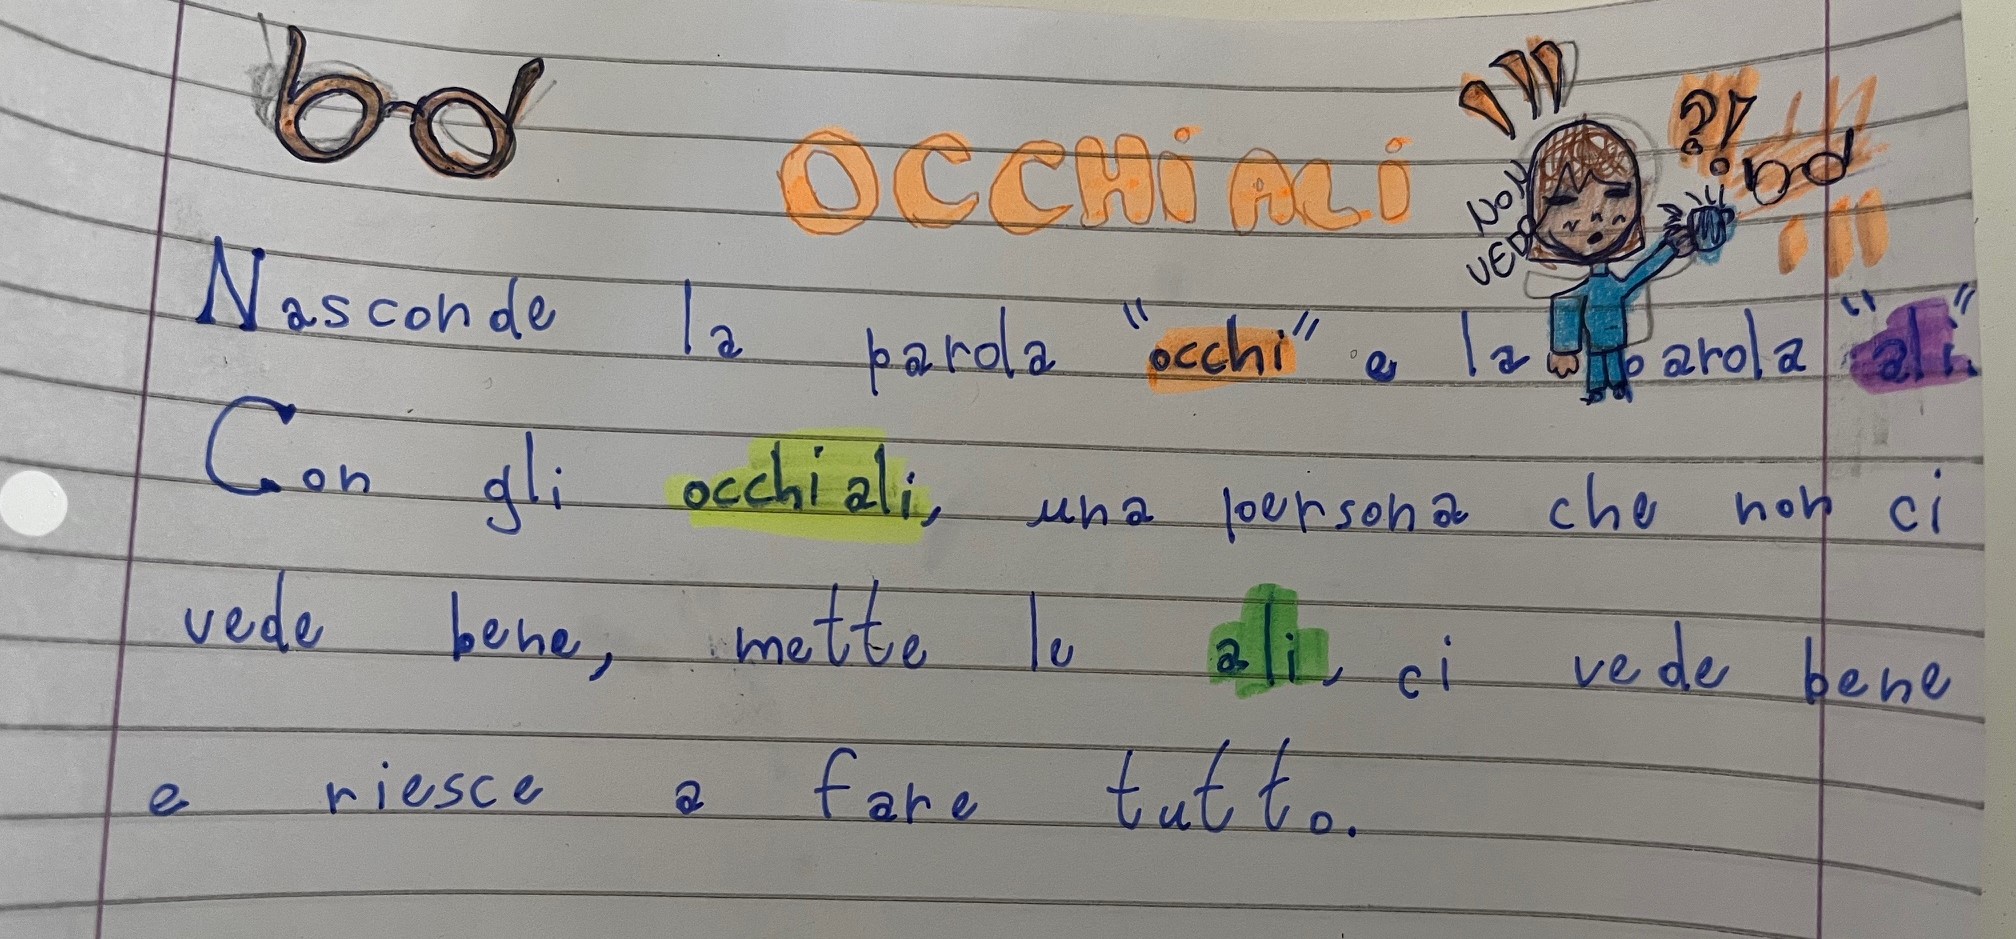 OCCHiALi
NON
VEDO
?!
Nasconde la parola "occhi" e la parola "ali".
Con gli occhiali, una persona che non ci
vede bene, mette le ali, ci vede bene
e riesce a fare tutto.